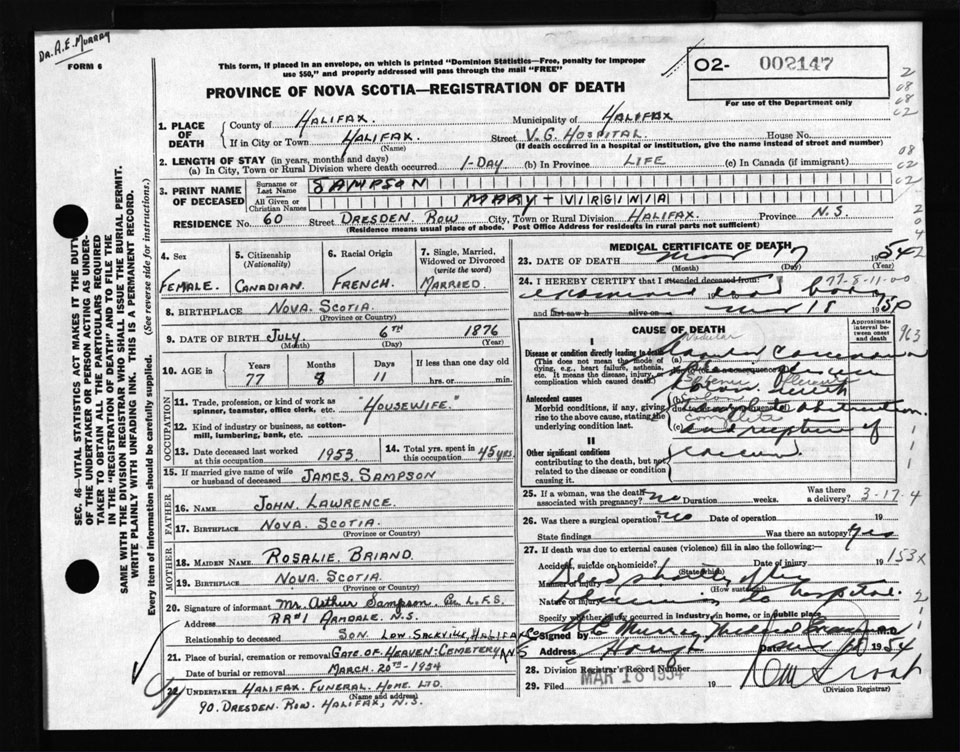 DR. A.E. MURRAY
FORM 6
This form, if placed in an envelope, on which is printed "Dominion Statistics—Free, penalty for improper
use $50," and properly addressed will pass through the mail "FREE"
PROVINCE OF NOVA SCOTIA—REGISTRATION OF DEATH
02- 002147
For use of the Department only
1. PLACE OF DEATH
County of HALIFAX. Municipality of HALIFAX
If in City or Town HALIFAX. Street V.G. HOSPITAL. House No.
(Name) (If death occurred in a hospital or institution, give the name instead of street and number)
2. LENGTH OF STAY (in years, months and days)
(a) In City, Town or Rural Division where death occurred 1-DAY (b) In Province LIFE (c) In Canada (if immigrant)
3. PRINT NAME OF DECEASED
Surname or Last Name SAMPSON
All Given or Christian Names MARY-VIRGINIA
RESIDENCE No. 60 Street DRESDEN. ROW City, Town or Rural Division HALIFAX. Province N.S.
(Residence means usual place of abode. Post Office Address for residents in rural parts not sufficient)
4. Sex FEMALE.
5. Citizenship (Nationality) CANADIAN.
6. Racial Origin FRENCH.
7. Single, Married, Widowed or Divorced (write the word) MARRIED.
8. BIRTHPLACE NOVA. SCOTIA.
(Province or Country)
9. DATE OF BIRTH JULY. 6TH 1876
(Month) (Day) (Year)
10. AGE in Years 77 Months 8 Days 11 If less than one day old hrs. or min.
OCCUPATION
11. Trade, profession, or kind of work as spinner, teamster, office clerk, etc. "HOUSEWIFE."
12. Kind of industry or business, as cotton-mill, lumbering, bank, etc.
13. Date deceased last worked at this occupation 1953
14. Total yrs. spent in this occupation 45 yrs.
15. If married give name of wife or husband of deceased JAMES. SAMPSON
FATHER
16. NAME JOHN. LAWRENCE.
17. BIRTHPLACE NOVA. SCOTIA.
(Province or Country)
MOTHER
18. MAIDEN NAME ROSALIE. BRIAND
19. BIRTHPLACE NOVA. SCOTIA.
(Province or Country)
20. Signature of informant Mr. Arthur Sampson. Per L.F.S.
Address RR#1 ARMDALE. N.S.
Relationship to deceased SON. LOW. SACKVILLE, HALIFAX Co
21. Place of burial, cremation or removal GATE. OF HEAVEN-CEMETERY N.S
Date of burial or removal MARCH. 20TH - 1954
22. UNDERTAKER HALIFAX. FUNERAL. HOME. LTD.
(Name and address)
90. DRESDEN. ROW. HALIFAX, N.S.
SEC. 46—VITAL STATISTICS ACT MAKES IT THE DUTY
OF THE UNDERTAKER OR PERSON ACTING AS UNDER-
TAKER TO OBTAIN ALL THE PARTICULARS REQUIRED
IN THE "REGISTRATION OF DEATH" AND TO FILE THE
SAME WITH THE DIVISION REGISTRAR WHO SHALL ISSUE THE BURIAL PERMIT.
WRITE PLAINLY WITH UNFADING INK. THIS IS A PERMANENT RECORD.
Every item of information should be carefully supplied. (See reverse side for instructions.)
MEDICAL CERTIFICATE OF DEATH
23. DATE OF DEATH Mar 17 1954
(Month) (Day) (Year)
24. I HEREBY CERTIFY that I attended deceased from
examined dead body 19
and last saw h alive on Mar 18 19
CAUSE OF DEATH
Approximate interval between onset and death
I
Disease or condition directly leading to death
(This does not mean the mode of dying, e.g., heart failure, asthenia, etc. It means the disease, injury, complication which caused death.)
(a) Carcinoma
Antecedent causes
Morbid conditions, if any, giving rise to the above cause, stating the underlying condition last.
(b) with
due to complete obstruction.
(c) and rupture of
II
Other significant conditions
contributing to the death, but not related to the disease or condition causing it.
caecum
25. If a woman, was the death associated with pregnancy? no Duration weeks. Was there a delivery? 3-17-4
26. Was there a surgical operation? no Date of operation 19
State findings Was there an autopsy? Yes
27. If death was due to external causes (violence) fill in also the following:—
Accident, suicide or homicide? Date of injury 19
(State which)
Manner of injury Died shortly after
(How sustained)
Nature of injury admission to hospital.
Specify whether injury occurred in industry, in home, or in public place
Signed by A E Murray Medical Examiner M.D.
Address Date Mar 18 1954
28. Division Registrar's Record Number
29. Filed MAR 18 1954 19
(Division Registrar)
963
153x